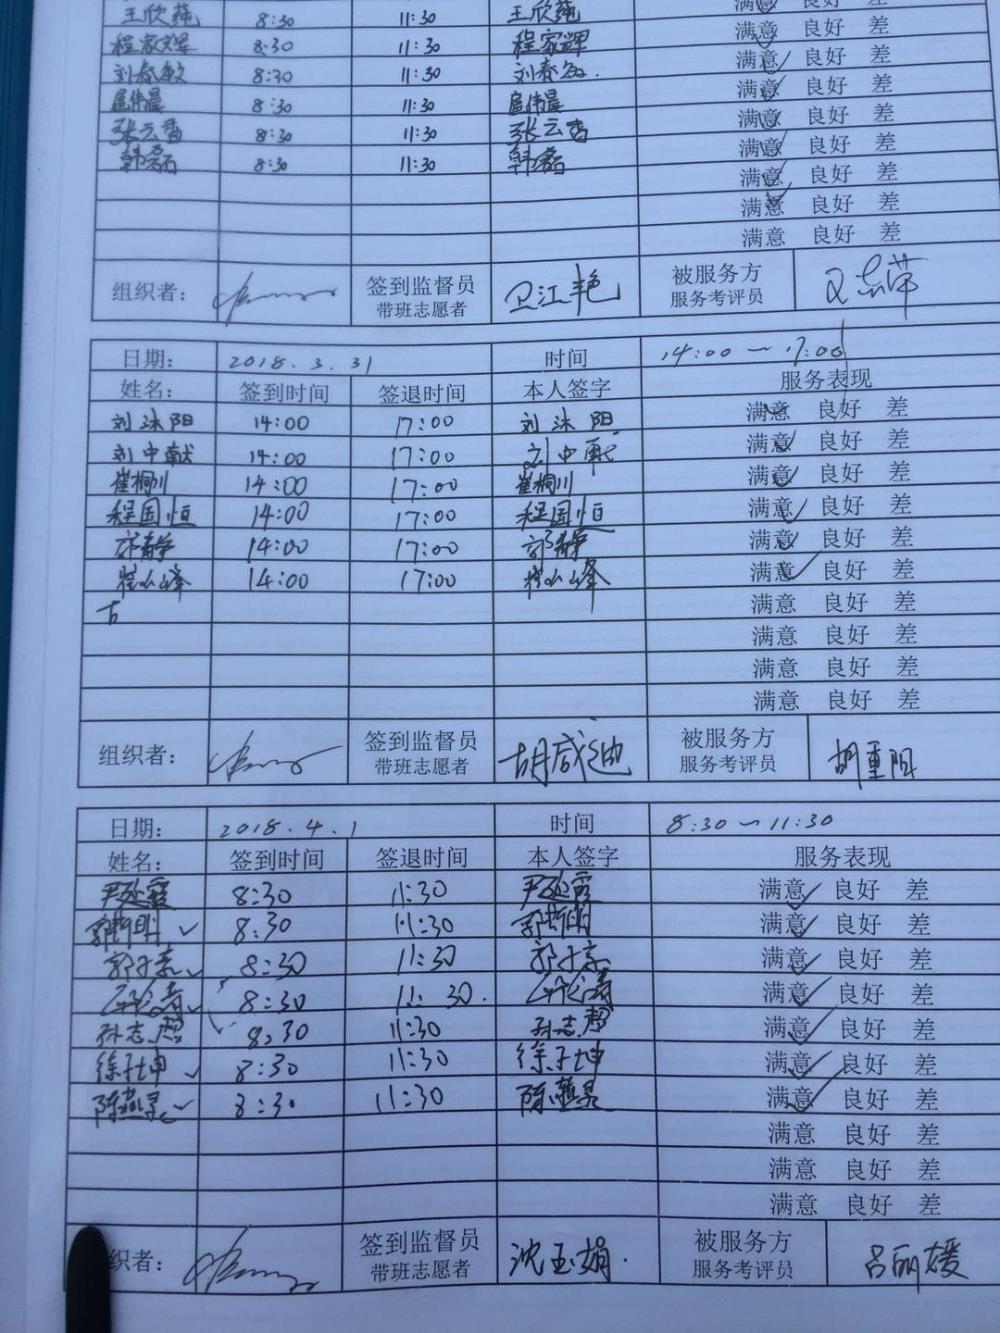 满意 良好 差
王欣 8:30 11:30 王欣 满意 良好 差
程家辉 8:30 11:30 程家辉 满意 良好 差
刘春敏 8:30 11:30 刘春 满意 良好 差
伟晨 8:30 11:30 伟晨 满意 良好 差
张云香 8:30 11:30 张云香 满意 良好 差
韩磊 8:30 11:30 韩磊 满意 良好 差
满意 良好 差
满意 良好 差
组织者: 签到监督员 卫江艳 被服务方
带班志愿者 服务考评员
日期: 2018.3.31 时间 14:00—17:00
姓名: 签到时间 签退时间 本人签字 服务表现
刘沐阳 14:00 17:00 刘沐阳 满意 良好 差
刘中献 14:00 17:00 刘中献 满意 良好 差
崔桐川 14:00 17:00 崔桐川 满意 良好 差
程国恒 14:00 17:00 程国恒 满意 良好 差
14:00 17:00 满意 良好 差
14:00 17:00 满意 良好 差
满意 良好 差
满意 良好 差
满意 良好 差
满意 良好 差
组织者: 签到监督员 胡咸迪 被服务方 胡重阳
带班志愿者 服务考评员
日期: 2018.4.1 时间 8:30—11:30
姓名: 签到时间 签退时间 本人签字 服务表现
8:30 11:30 满意 良好 差
8:30 11:30 满意 良好 差
8:30 11:30 满意 良好 差
8:30 11:30. 满意 良好 差
孙志 8:30 11:30 孙志 满意 良好 差
徐子坤 8:30 11:30 徐子坤 满意 良好 差
陈燕 8:30 11:30 陈燕 满意 良好 差
满意 良好 差
满意 良好 差
满意 良好 差
织者: 签到监督员 沈玉娟. 被服务方 吕丽媛
带班志愿者 服务考评员